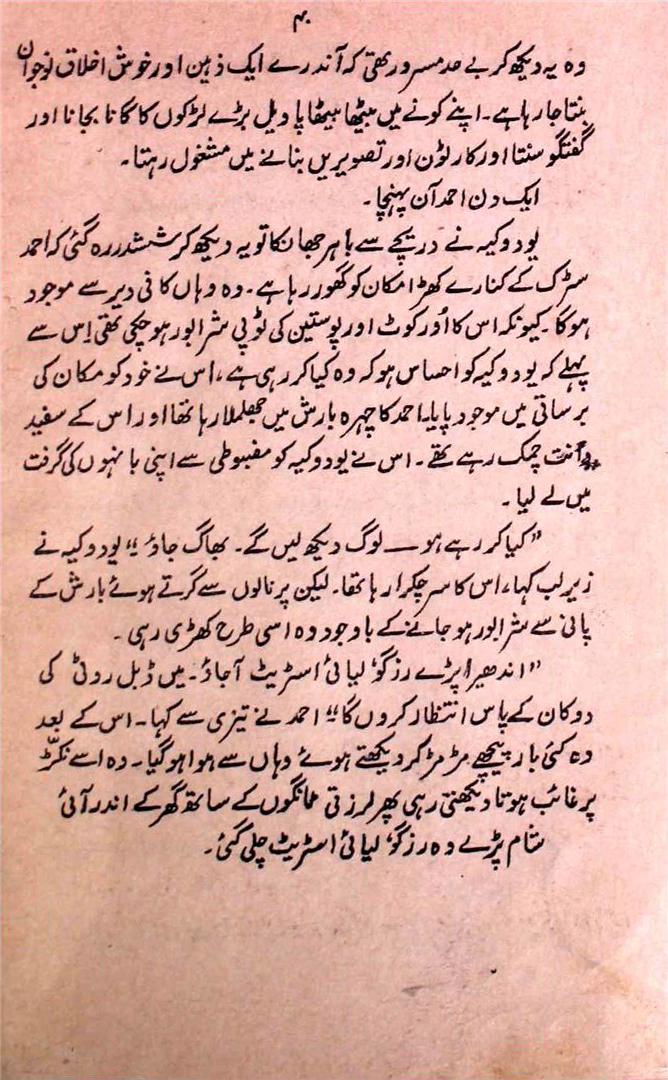 ۴۰
وہ یہ دیکھ کر بے حد مسرور تھی کہ آندرے ایک ذہین اور خوش اخلاق نوجوان
بنتا جا رہا ہے۔ اپنے کونے میں بیٹھا بیٹھا پاویل بڑے لڑکوں کا گانا بجانا اور
گفتگو سنتا اور کارٹون اور تصویریں بنانے میں مشغول رہتا۔
ایک دن احمد آن پہنچا۔
یودوکیہ نے دریچے سے باہر جھانکا تو یہ دیکھ کر ششدر رہ گئی کہ احمد
سڑک کے کنارے کھڑا مکان کو گھور رہا ہے۔ وہ وہاں کافی دیر سے موجود
ہوگا۔ کیونکہ اس کا اُورکوٹ اور پوستین کی ٹوپی شرابور ہو چکی تھی اِس سے
پہلے کہ یودوکیہ کو احساس ہو کہ وہ کیا کر رہی ہے، اس نے خود کو مکان کی
برساتی میں موجود پایا۔ احمد کا چہرہ بارش میں جھلملا رہا تھا اور اس کے سفید
دانت چمک رہے تھے۔ اس نے یودوکیہ کو مضبوطی سے اپنی بانہوں کی گرفت
میں لے لیا۔
"کیا کر رہے ہو — لوگ دیکھ لیں گے۔ بھاگ جاؤ" یودوکیہ نے
زیر لب کہا، اس کا سر چکرا رہا تھا۔ لیکن پرنالوں سے گرتے ہوئے بارش کے
پانی سے شرابور ہو جانے کے باوجود وہ اسی طرح کھڑی رہی۔
"اندھیرا پڑے رزگولیائی اسٹریٹ آجاؤ۔ میں ڈبل روٹی کی
دوکان کے پاس انتظار کروں گا" احمد نے تیزی سے کہا۔ اس کے بعد
وہ کئی بار پیچھے مڑ مڑ کر دیکھتے ہوئے وہاں سے ہوا ہو گیا۔ وہ اسے نکڑّ
پر غائب ہوتا دیکھتی رہی پھر لرزتی ٹانگوں کے ساتھ گھر کے اندر آئی
شام پڑے وہ رزگولیائی اسٹریٹ چلی گئی۔